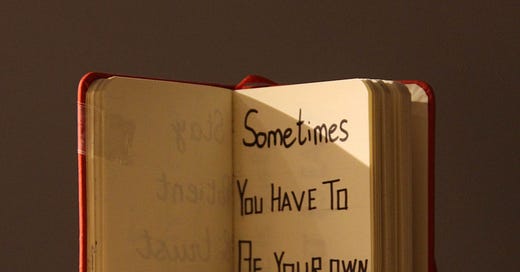 Sometimes
YOU HAVE TO
BE YOUR OWN